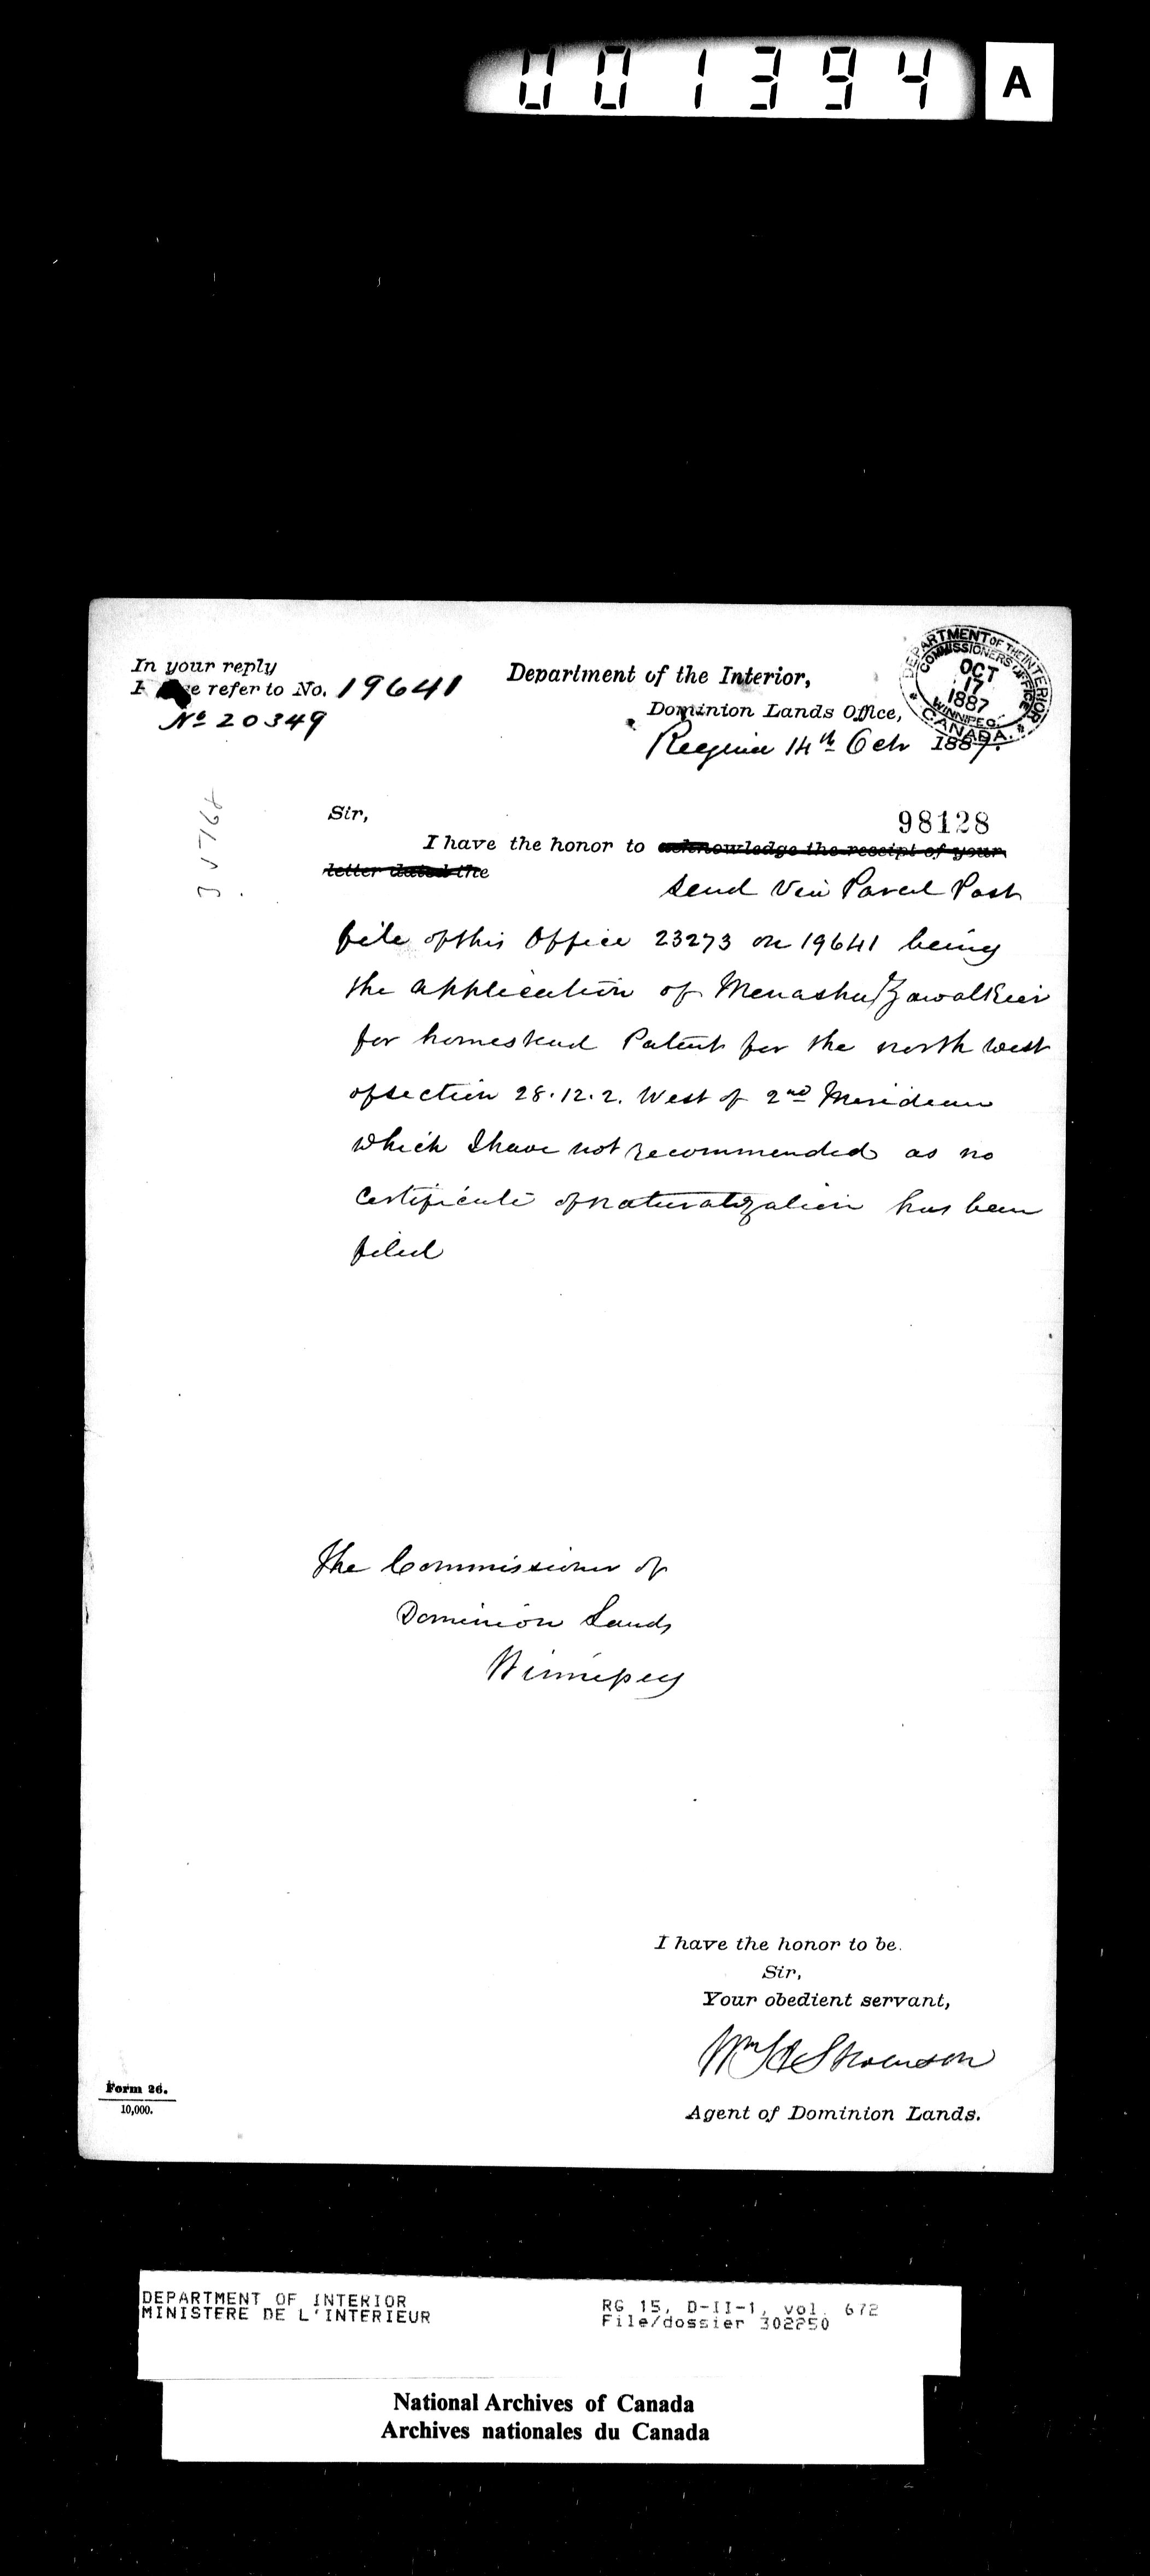 001394 A
In your reply
refer to No. 19641
No 20349
Department of the Interior,
Dominion Lands Office,
Regina 14th Oct 1887.
DEPARTMENT OF THE INTERIOR
COMMISSIONERS OFFICE
OCT
17
1887
WINNIPEG.
* CANADA. *
Sir,
98128
I have the honor to acknowledge the receipt of your
letter dated the
send via Parcel Post
file of this Office 23273 on 19641 being
the application of Menasha Zawalkeir
for homestead Patent for the north west
of section 28.12.2. West of 2nd Meridean
which I have not recommended as no
Certificate of naturalization has been
filed
The Commissioner of
Dominion Lands
Winnipeg
I have the honor to be.
Sir,
Your obedient servant,
Wm H Stevenson
Agent of Dominion Lands.
Form 26.
10,000.
DEPARTMENT OF INTERIOR
MINISTERE DE L'INTERIEUR
RG 15, D-II-1, vol. 672
File/dossier 302250
National Archives of Canada
Archives nationales du Canada